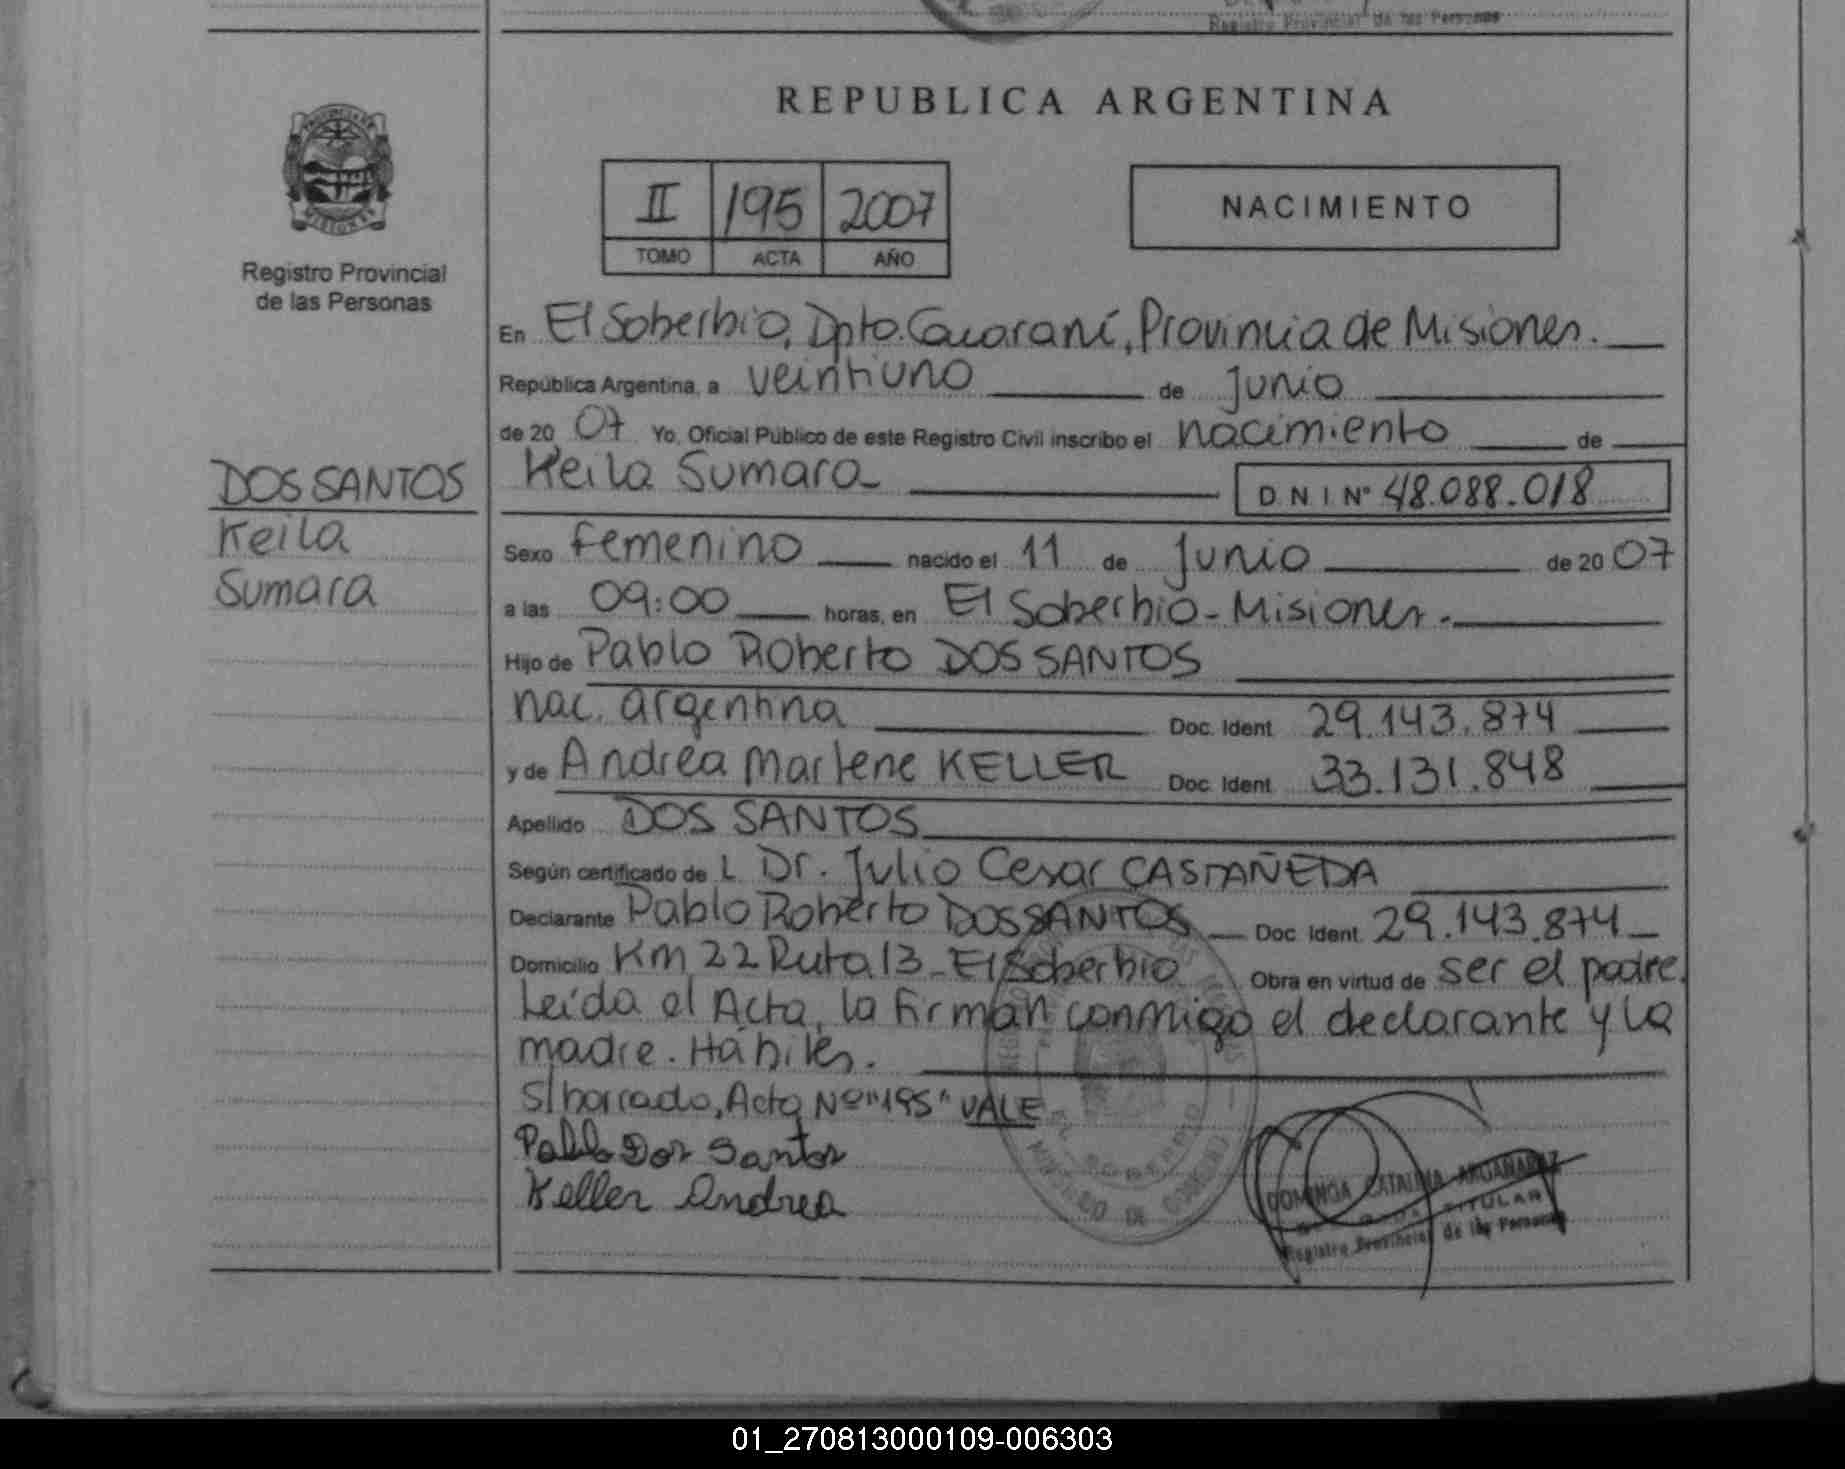 Registro Provincial de las Personas
REPUBLICA ARGENTINA
PROVINCIA DE
MISIONES
Registro Provincial
de las Personas
II 195 2007
TOMO ACTA AÑO
NACIMIENTO
En El Soberbio, Dpto. Guaraní, Provincia de Misiones.
República Argentina, a veintiuno de junio
de 20 07 Yo, Oficial Público de este Registro Civil inscribo el nacimiento de
DOS SANTOS
Keila
Sumara
Keila Sumara
D.N.I. Nº 48.088.018
Sexo femenino nacido el 11 de junio de 20 07
a las 09:00 horas, en El Soberbio - Misiones.
Hijo de Pablo Roberto DOS SANTOS
nac. argentina Doc. Ident. 29.143.874
y de Andrea Marlene KELLER Doc. Ident. 33.131.848
Apellido DOS SANTOS
Según certificado de L Dr. Julio Cesar CASTAÑEDA
Declarante Pablo Roberto DOS SANTOS Doc. Ident. 29.143.874
Domicilio Km 22 Ruta 13 - El Soberbio Obra en virtud de ser el padre.
Leída el Acta, la firman conmigo el declarante y la
madre. Hábiles.
S/borrado, Acta Nº "195" VALE
Pablo Dos Santos
Keller Andrea
EL SOBERBIO
MINISTERIO DE GOBIERNO
DOMINGA CATALINA ARGAÑARAZ
TITULAR
Registro Provincial de las Personas
01_270813000109-006303